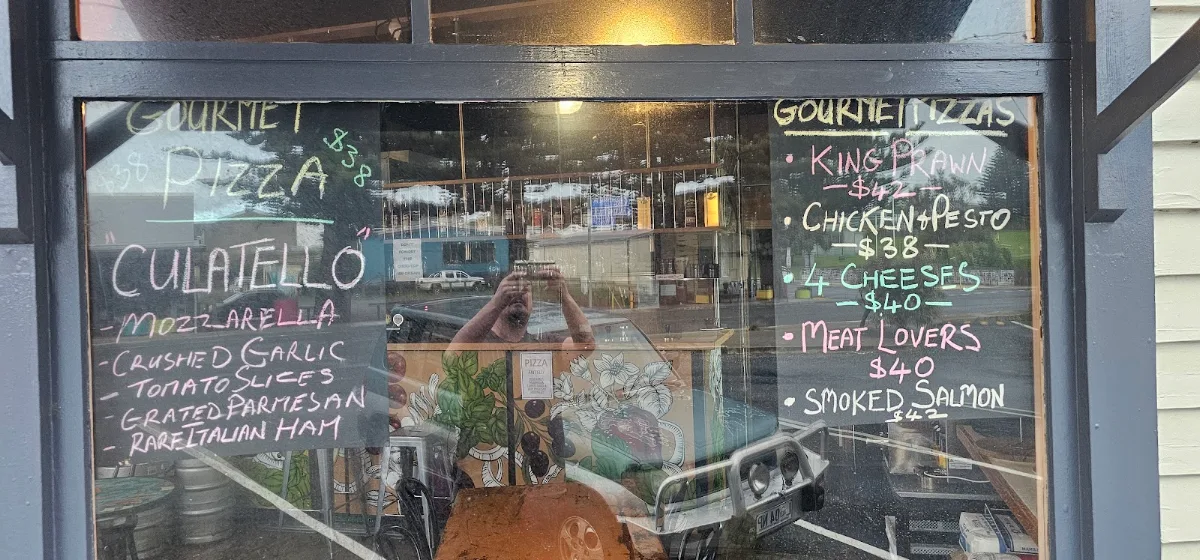 GOURMET
PIZZA $38
"CULATELLO"
- MOZZARELLA
- CRUSHED GARLIC
- TOMATO SLICES
- GRATED PARMESAN
- RARE ITALIAN HAM
PIZZA
GOURMET PIZZAS
• KING PRAWN
- $42 -
• CHICKEN & PESTO
- $38 -
• 4 CHEESES
- $40 -
• MEAT LOVERS
$40
• SMOKED SALMON
$42